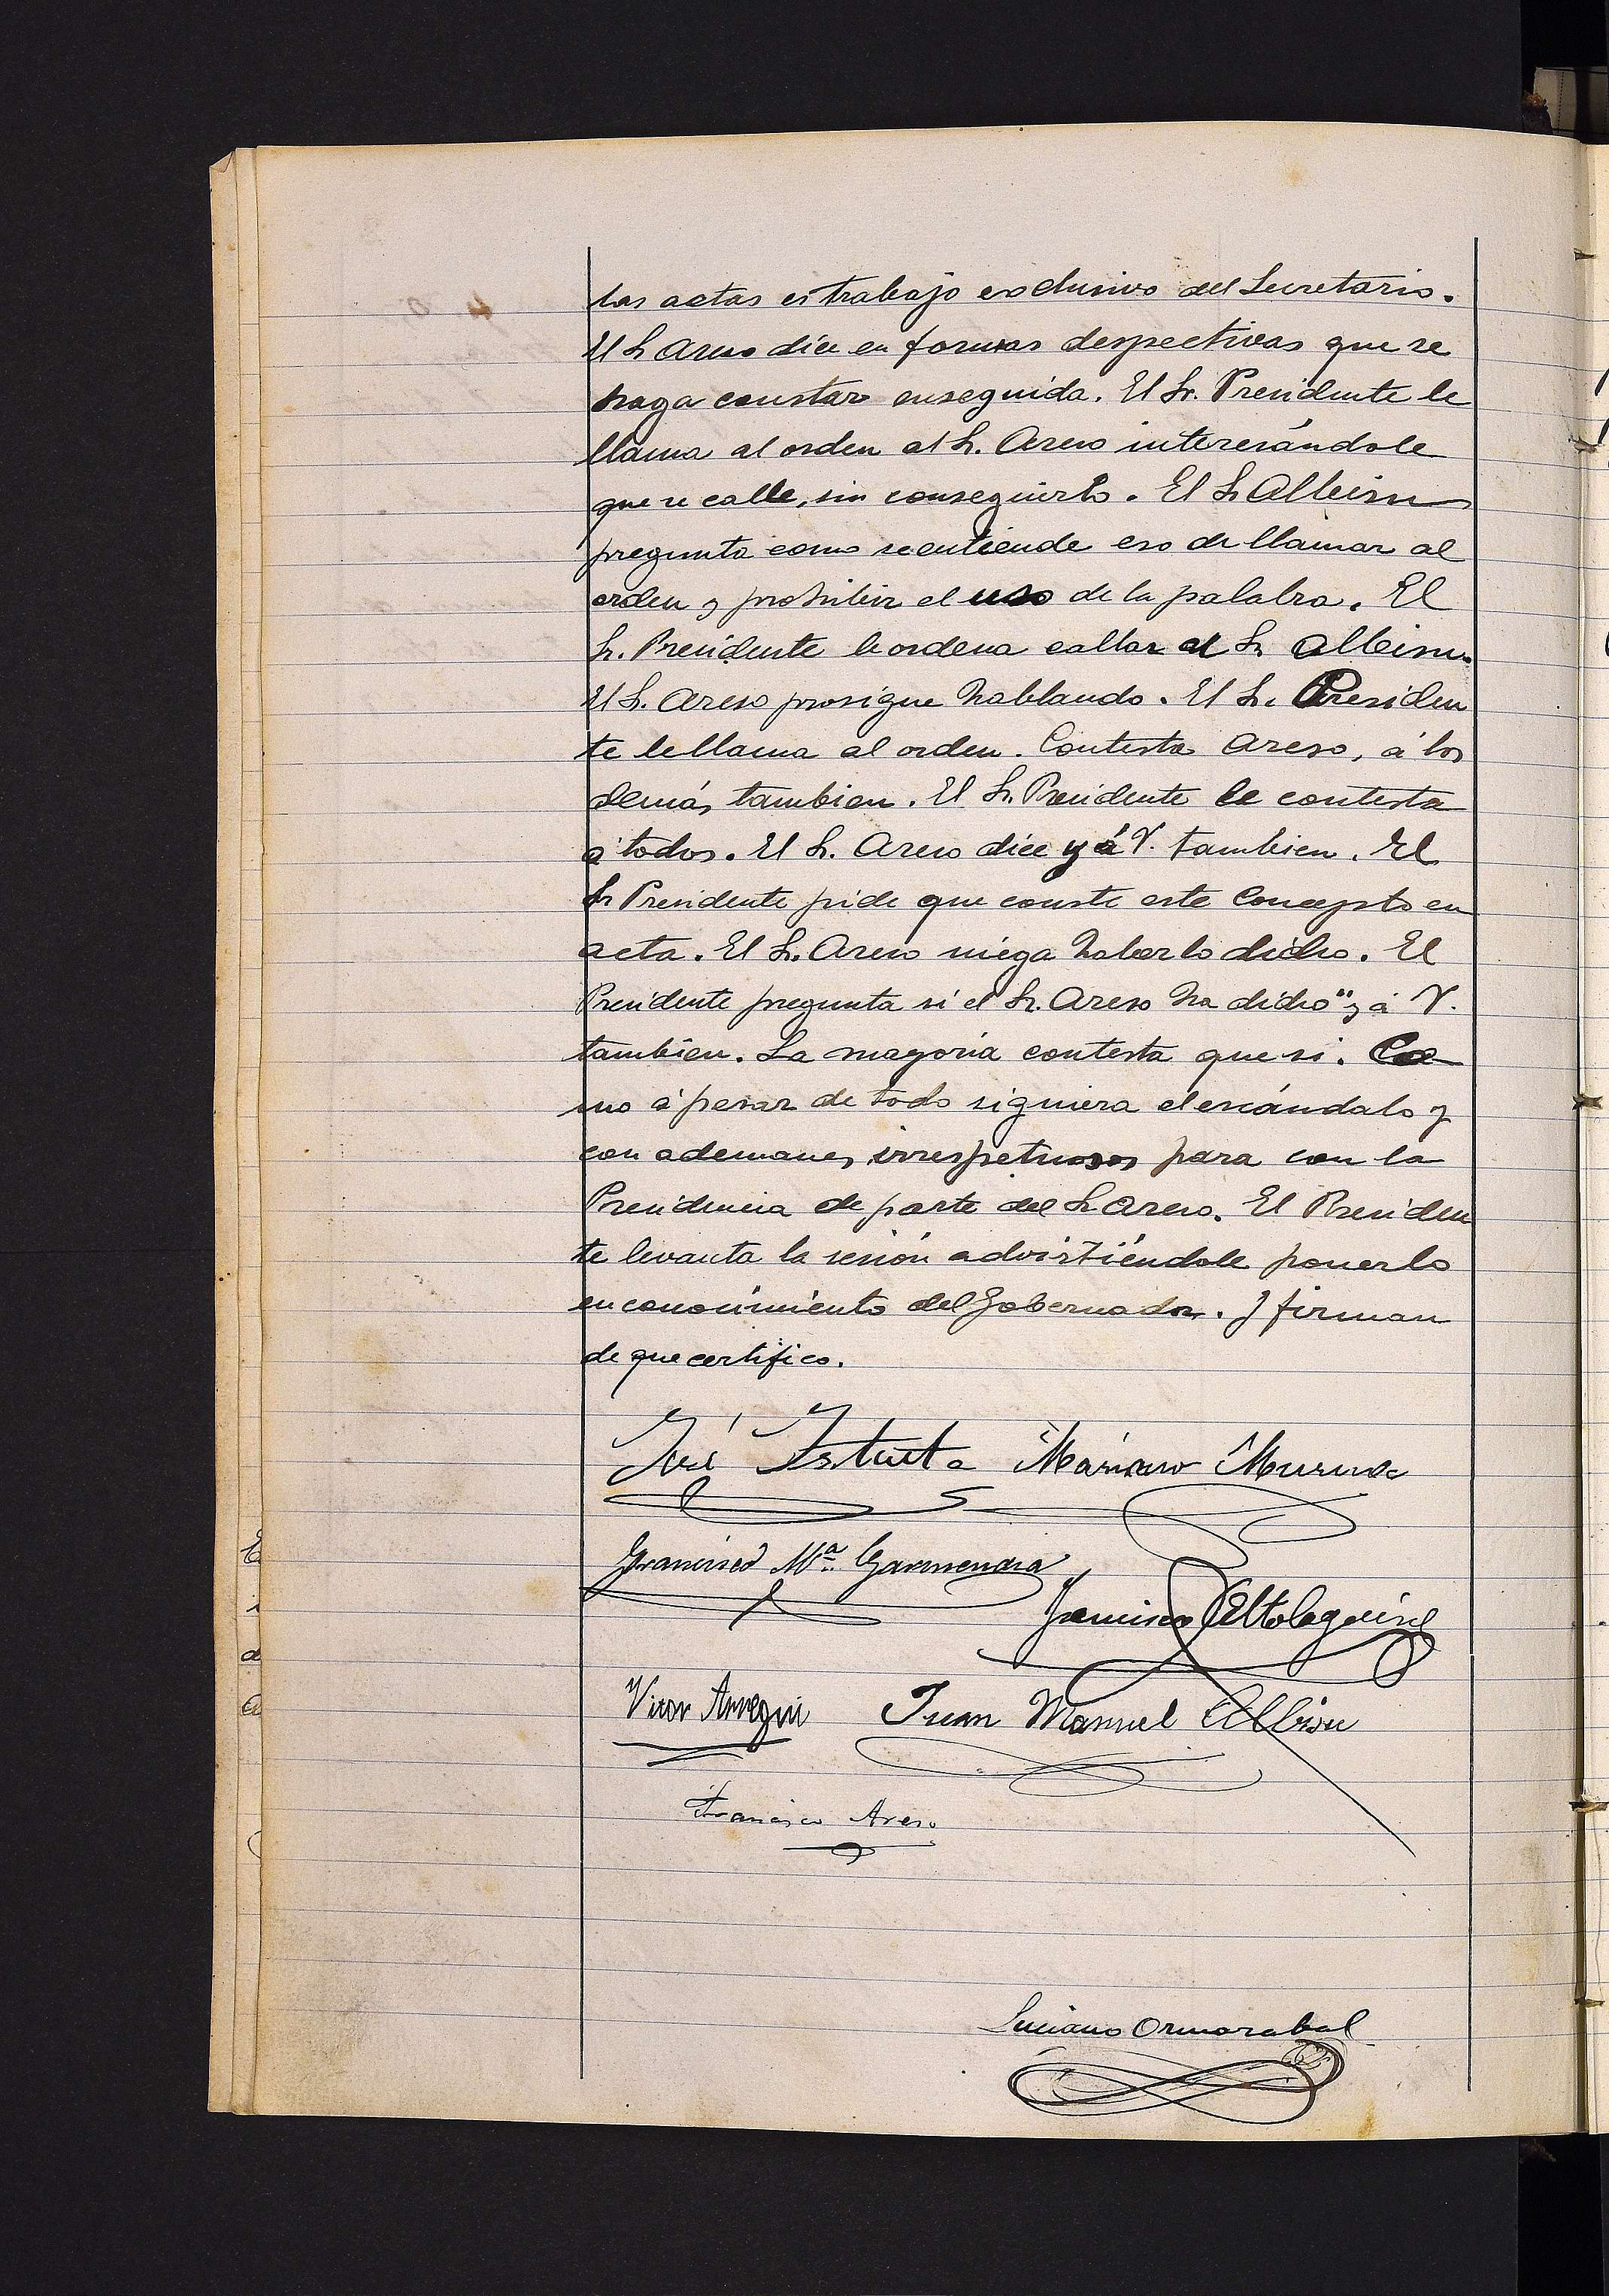 las actas es trabajo exclusivo del Secretario.
El Sr Areso dice en formas despectivas que se
haga constar enseguida. El Sr. Presidente le
llama al orden al Sr. Areso interesándole
que se calle, sin conseguirlo. El Sr Albisu
pregunta como se entiende eso de llamar al
orden y prohibir el uso de la palabra. El
Sr. Presidente le ordena callar al Sr Albisu.
El Sr. Areso prosigue hablando. El Sr. Presiden
te le llama al orden. Contesta Areso, á los
demás tambien. El Sr. Presidente le contesta
á todos. El Sr. Areso dice y á V. tambien. El
Sr Presidente pide que conste este concepto en
acta. El Sr. Areso niega haberlo dicho. El
Presidente pregunta si el Sr. Areso ha dicho "y á V.
tambien. La mayoria contesta que si. Co
mo á pesar de todo siguiera el escándalo y
con ademanes irrespetuosos para con la
Presidencia de parte del Sr Areso. El Presiden
te levanta la sesión advirtiéndole ponerlo
en conocimiento del Gobernador. Y firman
de que certifico.
José Mariano Murua
Francisco Mª Garmendia
Francisco Altolaguirre
Victor Arregui Juan Manuel Albisu
Francisco Areso
Luciano Ormazabal